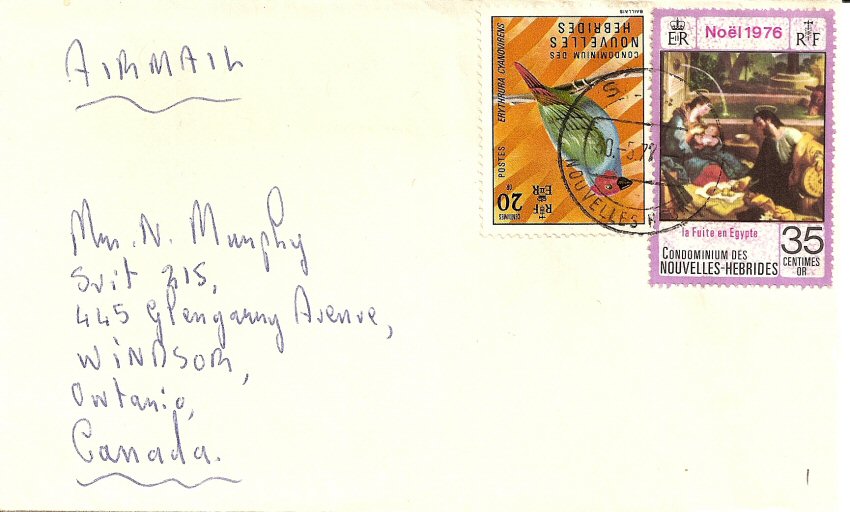 AIRMAIL
BAILLAIS
CONDOMINIUM DES
NOUVELLES
HEBRIDES
ERYTHRURA CYANOVIRENS
POSTES
20
CENTIMES
OR
RF
EIIR
EIIR
Noël 1976
RF
la Fuite en Egypte
35
CENTIMES
OR
CONDOMINIUM DES
NOUVELLES-HEBRIDES
NOUVELLES
Mrs. N. Murphy
Suit 215,
445 Glengarry Avenue,
WINDSOR,
Ontario,
Canada.